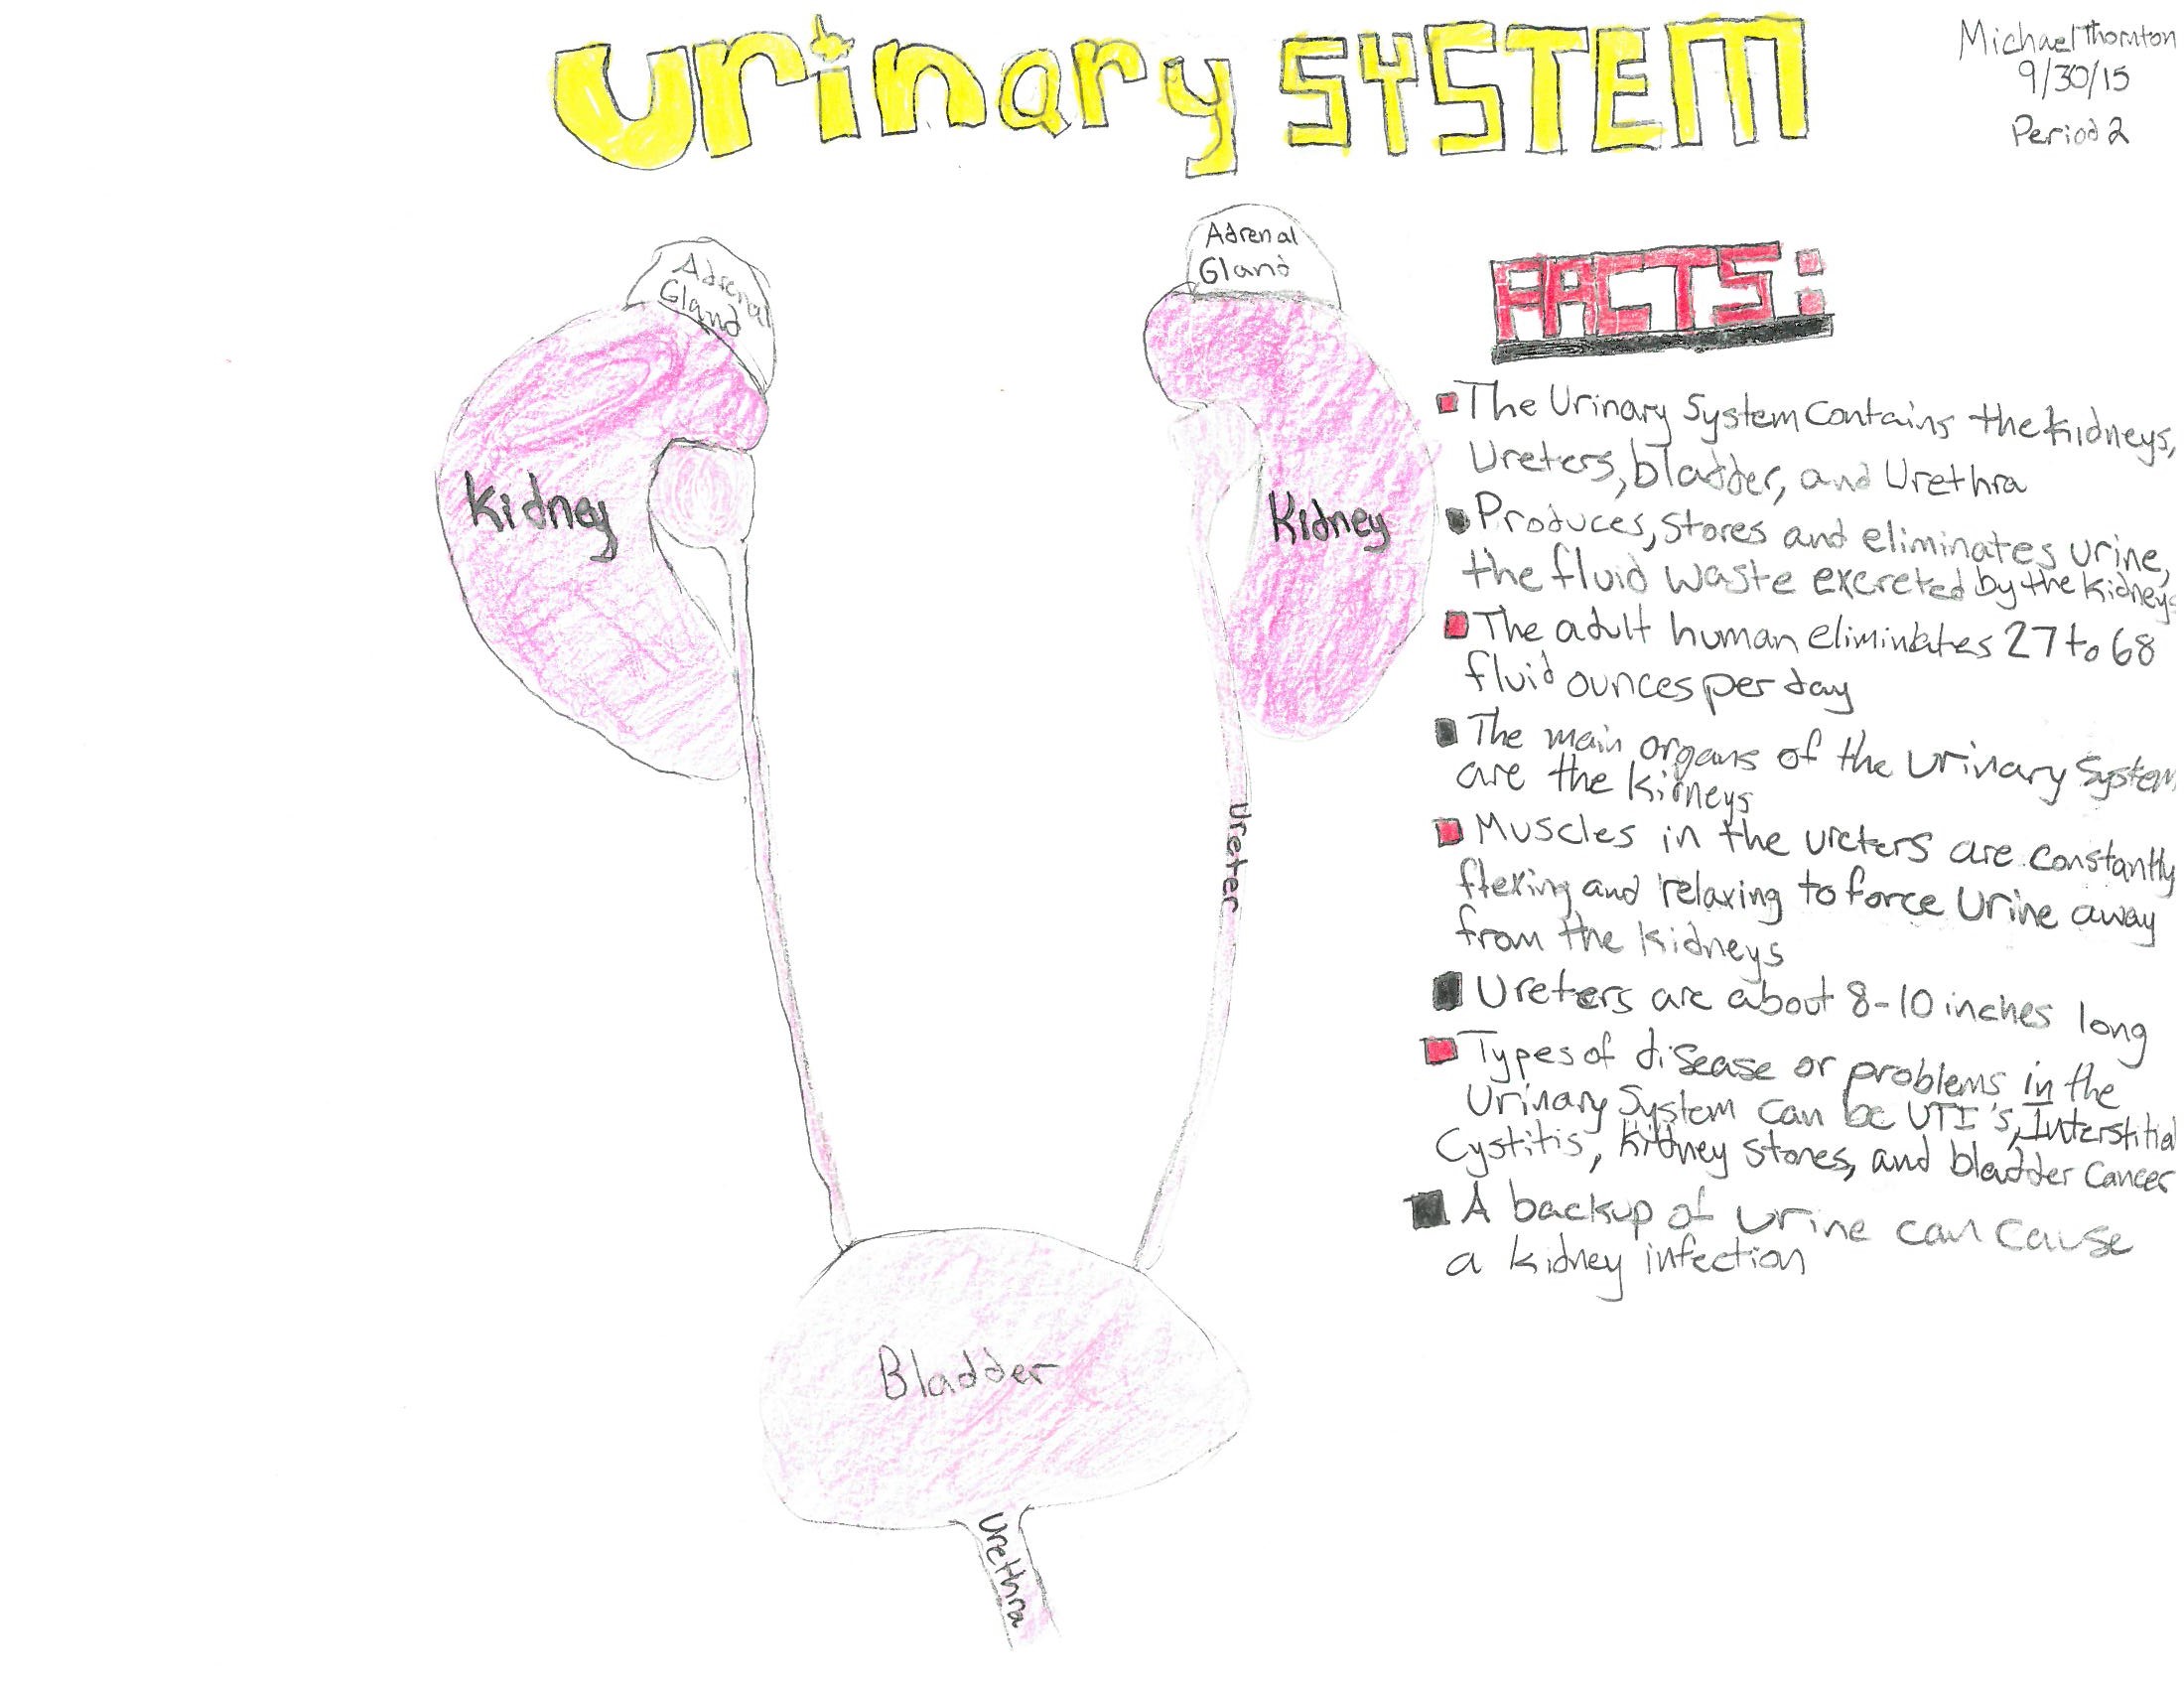 Urinary SYSTEM
Michael Thornton
9/30/15
Period 2
Adrenal
Gland
Adrenal
Gland
Kidney
Kidney
Ureter
Bladder
Urethra
FACTS:
The Urinary System Contains the kidneys,
Ureters, bladder, and Urethra
Produces, Stores and eliminates urine,
the fluid waste excreted by the kidneys
The adult human eliminates 27 to 68
fluid ounces per day
The main organs of the urinary System
are the kidneys
Muscles in the ureters are constantly
flexing and relaxing to force Urine away
from the kidneys
Ureters are about 8-10 inches long
Types of disease or problems in the
Urinary System can be UTI's, Interstitial
Cystitis, kidney stones, and bladder Cancer
A backup of urine can cause
a kidney infection